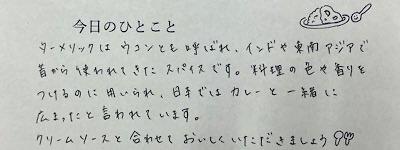 今日のひとこと
ターメリックは ウコンとも 呼ばれ、インドや 東南アジアで
昔から 使われてきた スパイスです。料理の 色や香りを
つけるのに 用いられ、日本では カレーと 一緒に
広まったと 言われています。
クリームソースと 合わせて おいしくいただきましょう